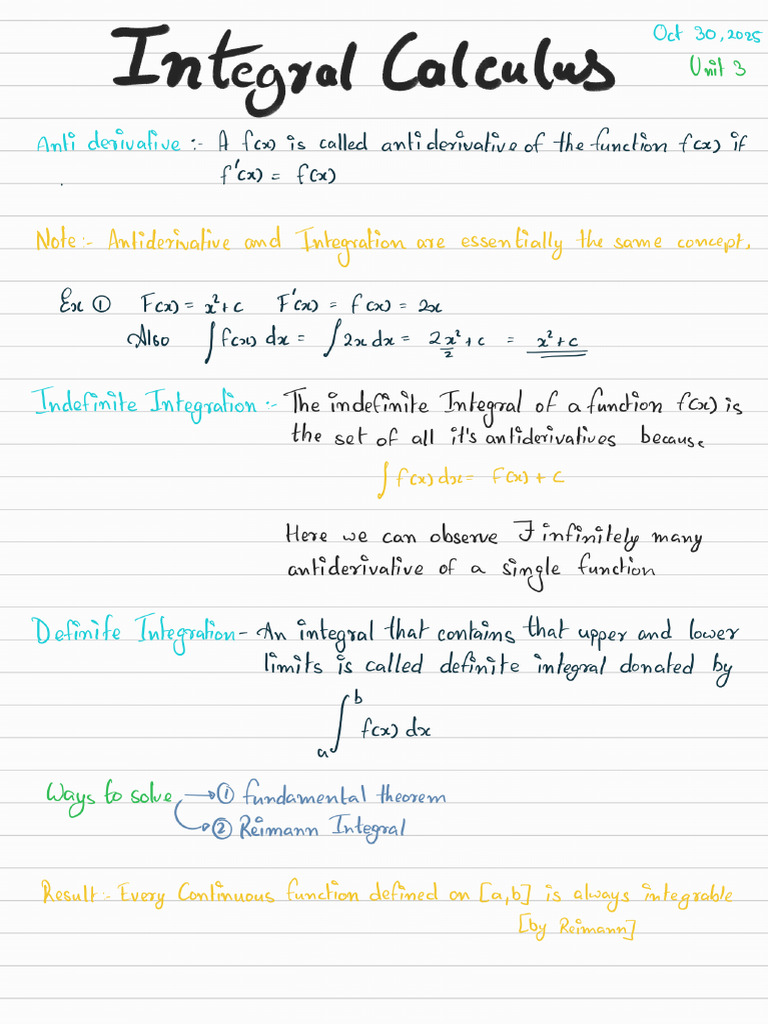 Integral Calculus
Oct 30, 2025
Unit 3
Anti derivative :- A f(x) is called antiderivative of the function f(x) if
f'(x) = f(x)
Note:- Antiderivative and Integration are essentially the same concept.
Ex ① F(x) = x²+c F'(x) = f(x) = 2x
Also ∫f(x) dx = ∫2x dx = 2x²/2 + c = x²+c
Indefinite Integration :- The indefinite Integral of a function f(x) is
the set of all it's antiderivatives because
∫f(x) dx = F(x) + c
Here we can observe ∃ infinitely many
antiderivative of a single function
Definite Integration - An integral that contains that upper and lower
limits is called definite integral donated by
∫ₐᵇ f(x) dx
Ways to solve → ① fundamental theorem
→ ② Reimann Integral
Result :- Every Continuous function defined on [a,b] is always integrable
[by Reimann]